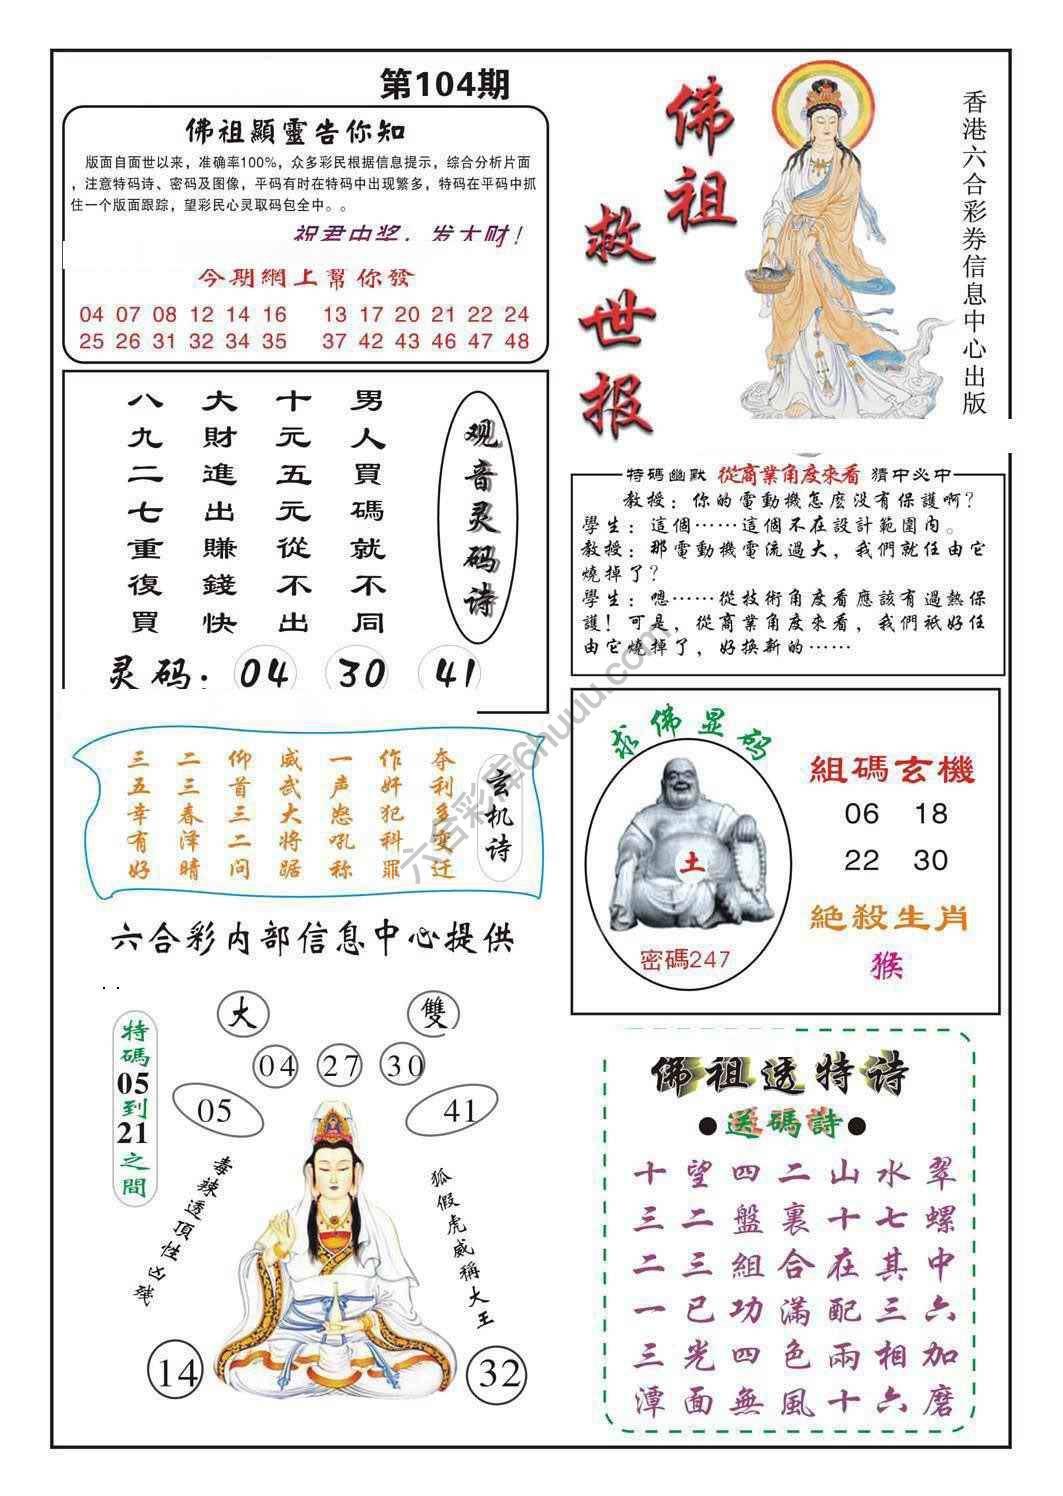 第104期
佛祖顯靈告你知
版面自面世以来，准确率100%，众多彩民根据信息提示，综合分析片面
，注意特码诗、密码及图像，平码有时在特码中出现繁多，特码在平码中抓
住一个版面跟踪，望彩民心灵取码包全中。。
祝君中奖，发大财！
今期網上幫你發
04 07 08 12 14 16 13 17 20 21 22 24
25 26 31 32 34 35 37 42 43 46 47 48
佛祖
救世报
香港六合彩券信息中心出版
观音灵码诗
男人買碼就不同
十元五元從不出
大財進出賺錢快
八九二七重復買
灵码：04 30 41
特碼幽默 從商業角度來看 猜中必中
教授：你的電動機怎麽没有保護啊？
學生：這個……這個不在設計範圍内。
教授：那電動機電流過大，我們就任由它
燒掉了？
學生：嗯……從技術角度看應該有過熱保
護！可是，從商業角度來看，我們衹好任
由它燒掉了，好换新的……
玄机诗
夺利多变迁
作奸犯科罪
一声怒吼称
威武大将踞
仰首三二问
二三春泽晴
三五幸有好
六合彩内部信息中心提供
求佛显码
土
密碼247
組碼玄機
06 18
22 30
絶殺生肖
猴
大 雙
04 27 30
05 41
特碼05到21之間
毒辣透頂性凶殘
狐假虎威稱大王
14 32
佛祖透特诗
●送碼詩●
十望四二山水翠
三二盤裏十七螺
二三組合在其中
一已功滿配三六
三光四色兩相加
潭面無風十六磨
六合彩库6huuu.com